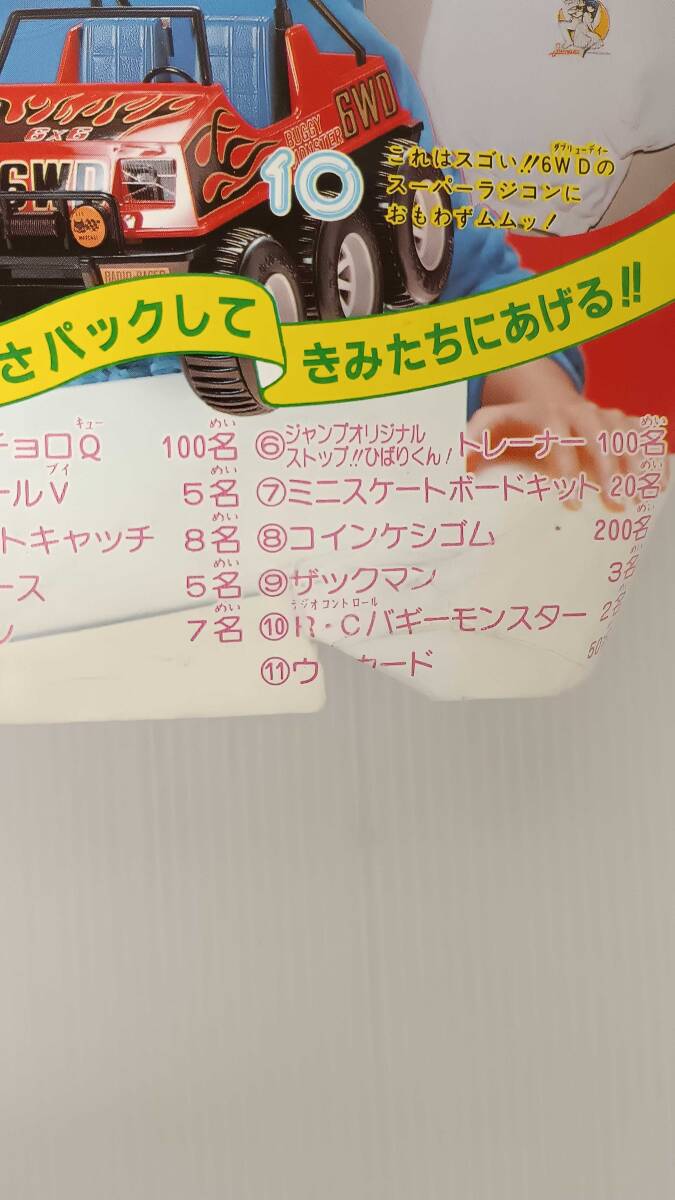 6WD
BUGGY
MONSTER
6×6
6WD
RADIO RACER
10
これはスゴい!!6WDのダブリューディー
スーパーラジコンに
おもわずムムッ!
さパックして
きみたちにあげる!!
チョロQキュー 100名めい
ールVブイ 5名めい
トキャッチ 8名めい
ース 5名めい
ン 7名めい
⑥ジャンプオリジナル
ストップ!!ひばりくん!トレーナー 100名めい
⑦ミニスケートボードキット 20名めい
⑧コインケシゴム 200名めい
⑨ザックマン 3名めい
⑩R・Cラジオコントロールバギーモンスター 2名
⑪ウ カード 50